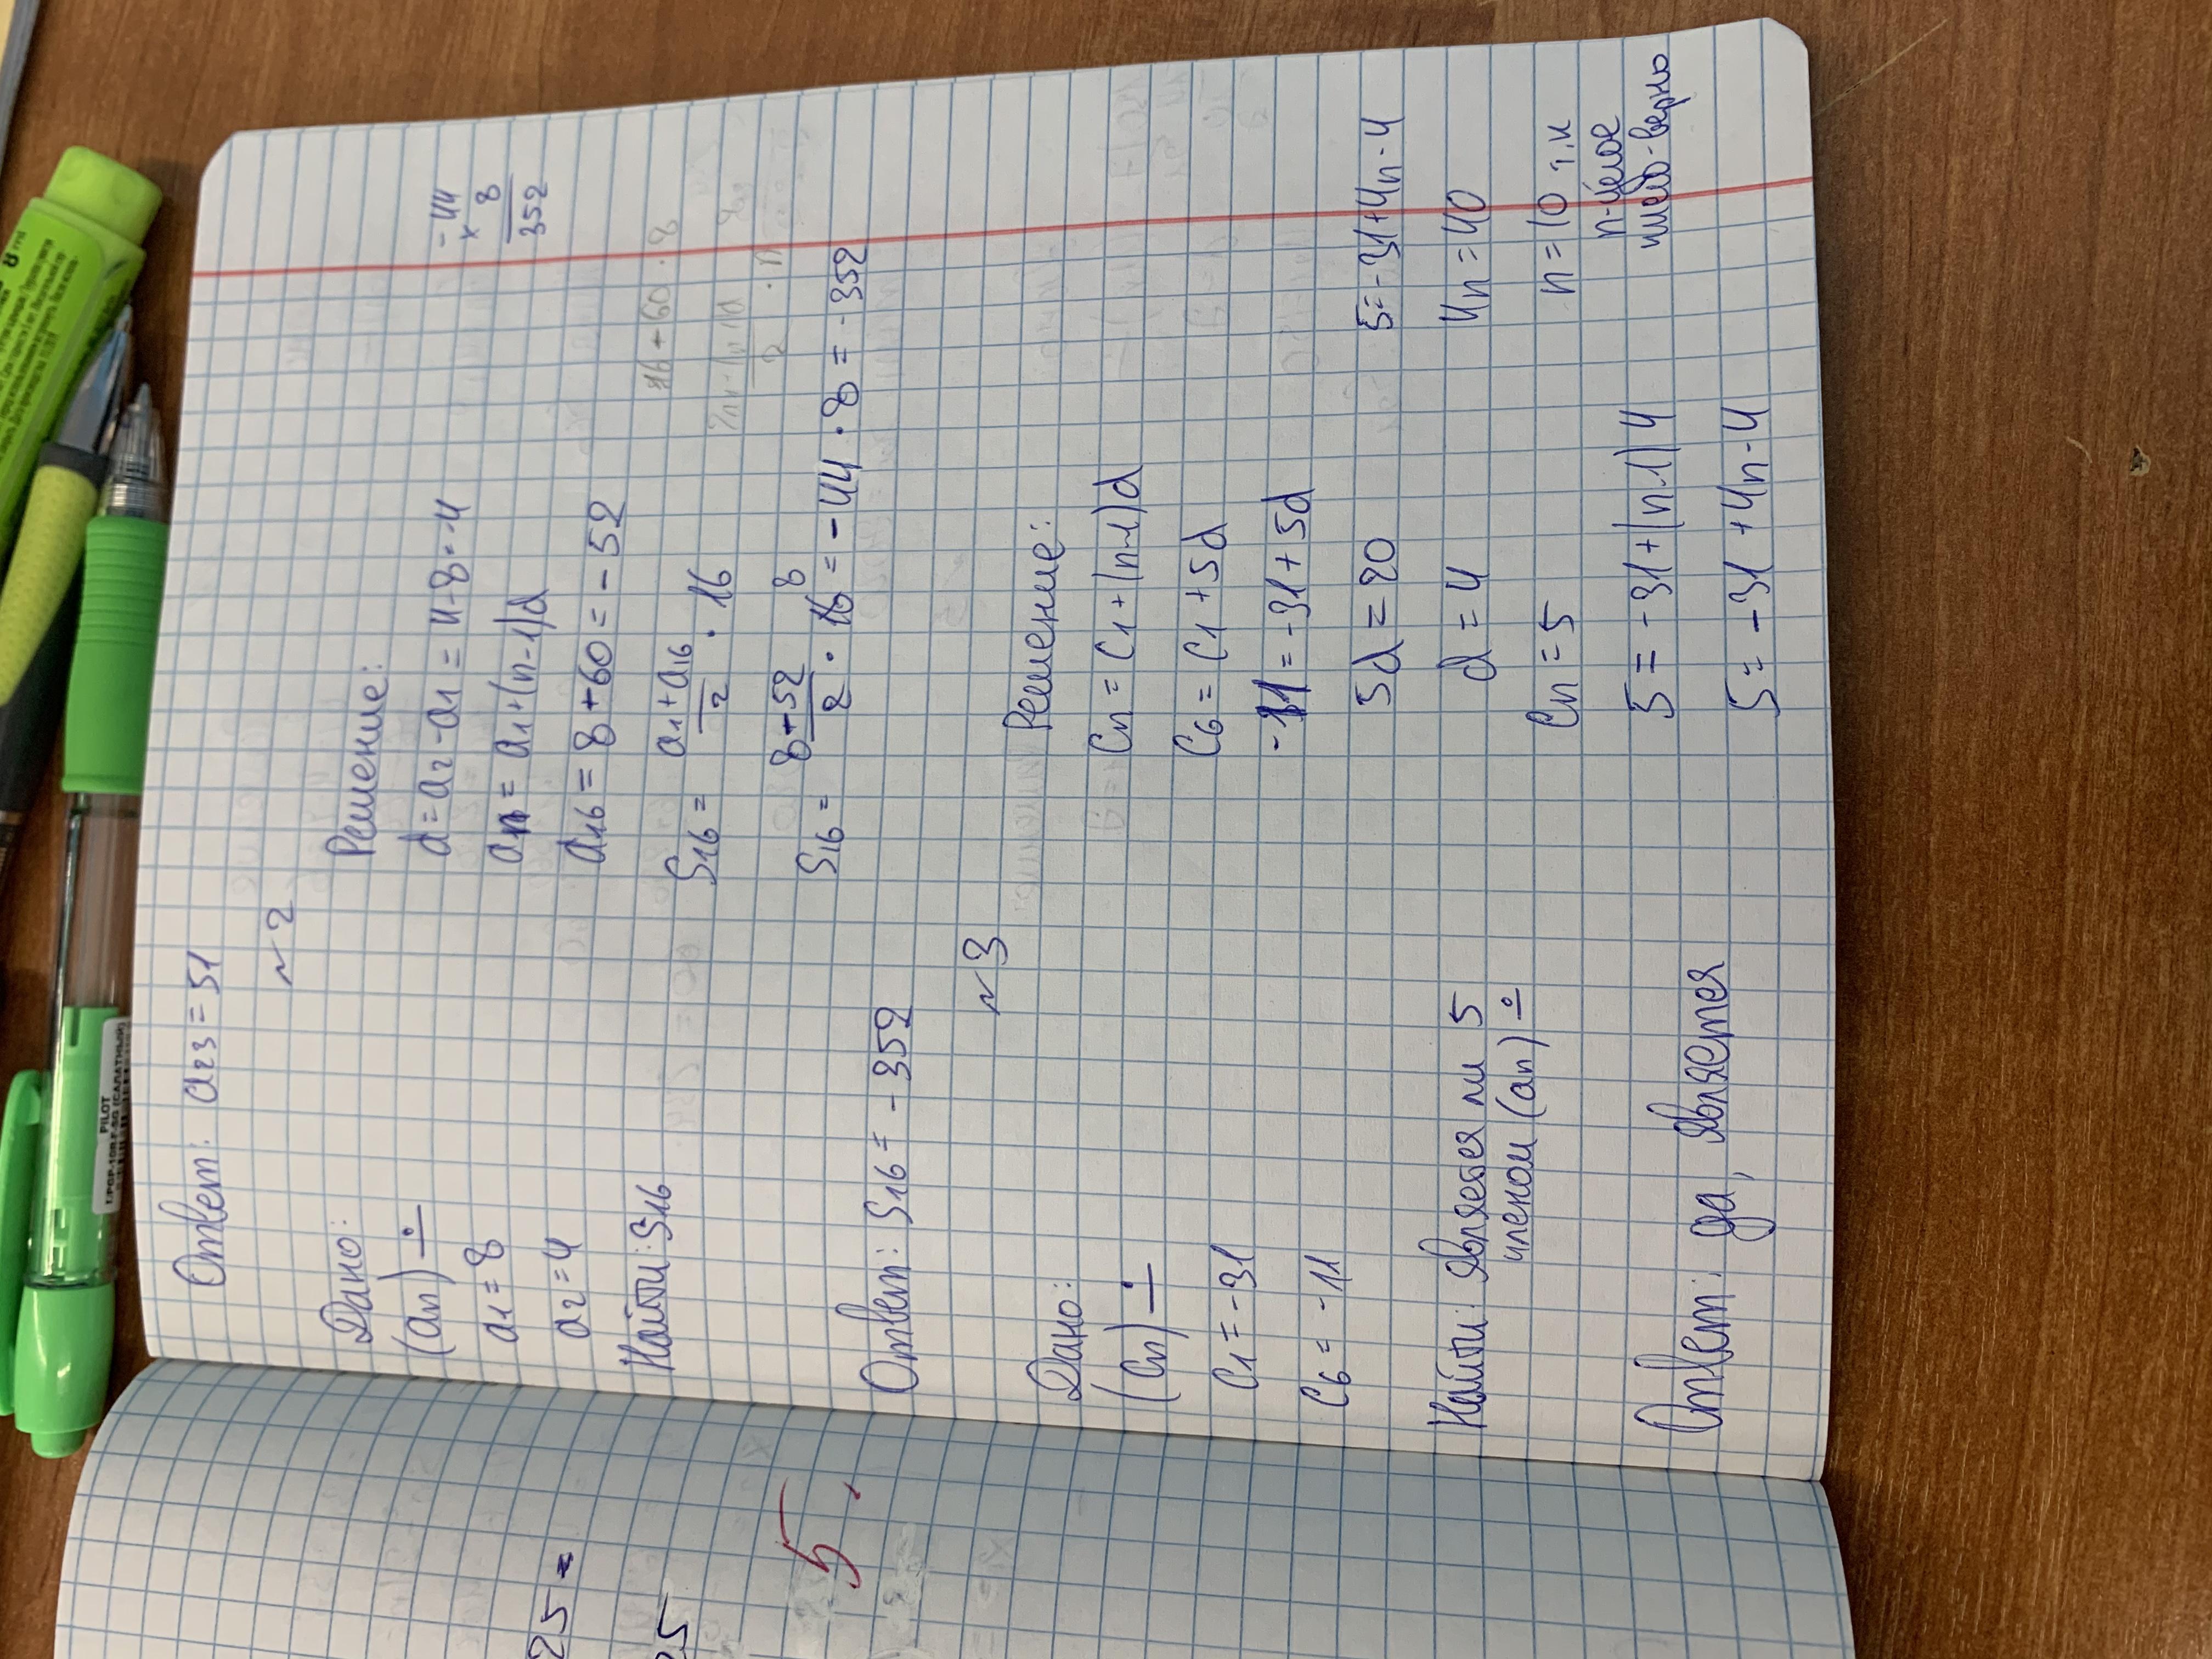 Ответ: a₂₃ = 51
№2
Дано:
(an) ÷
a₁ = 8
a₂ = 4
Найти: S₁₆
Решение:
d = a₂ - a₁ = 4 - 8 = -4
an = a₁ + (n-1)d
a₁₆ = 8 + 60 = - 52
S₁₆ = (a₁ + a₁₆)/2 · 16
S₁₆ = (8 + 52)/2 · 16 8 = - 44 · 8 = - 352
- 44
× 8
352
Ответ: S₁₆ = - 352
№3
Дано:
(Cn) ÷
C₁ = -31
C₆ = -11
Найти: является ли 5
членом (an) ÷
Решение:
Cn = C₁ + (n-1)d
C₆ = C₁ + 5d
-11 = -31 + 5d
5d = 20
d = 4
Cn = 5
5 = - 31 + (n-1)4
5 = - 31 + 4n - 4
5 = - 31 + 4n - 4
4n = 40
n = 10 т.к
n - целое
число - верно
Ответ: да, является
25 =
25
5
PILOT
8